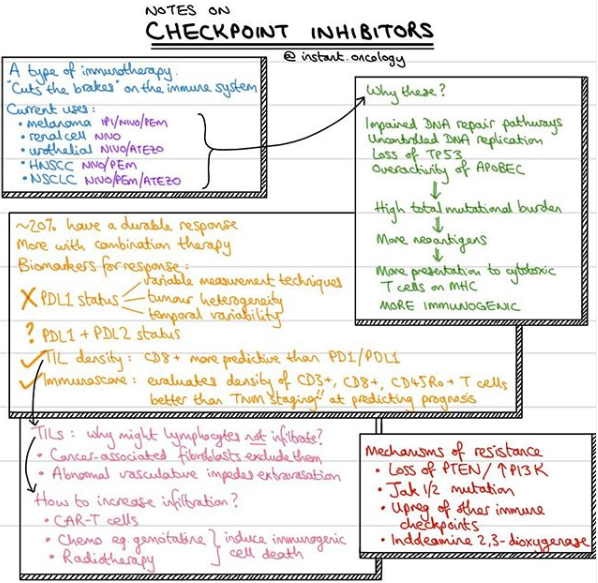 NOTES ON
CHECKPOINT INHIBITORS
@ instant.oncology
A type of immunotherapy.
"Cuts the brakes" on the immune system
Current uses:
• melanoma IPI/NIVO/PEM
• renal cell NIVO
• urothelial NIVO/ATEZO
• HNSCC NIVO/PEM
• NSCLC NIVO/PEM/ATEZO
Why these?
Impaired DNA repair pathways
Uncontrolled DNA replication
Loss of TP53
Overactivity of APOBEC
High total mutational burden
More neoantigens
More presentation to cytotoxic
T cells on MHC
MORE IMMUNOGENIC
~20% have a durable response
More with combination therapy
Biomarkers for response:
X PDL1 status
variable measurement techniques
tumour heterogeneity
temporal variability
? PDL1 + PDL2 status
✓ TIL density: CD8+ more predictive than PD1/PDL1
✓ Immunoscore: evaluates density of CD3+, CD8+, CD45Ro+ T cells
better than TNM staging!! at predicting prognosis
TILs: why might lymphocytes not infiltrate?
• Cancer-associated fibroblasts exclude them
• Abnormal vasculature impedes extravasation
How to increase infiltration?
• CAR-T cells
• Chemo eg. gemcitabine } induce immunogenic
• Radiotherapy } cell death
Mechanisms of resistance
• Loss of PTEN/↑PI3K
• Jak 1/2 mutation
• Upreg of other immune
checkpoints
• Indoleamine 2,3-dioxygenase